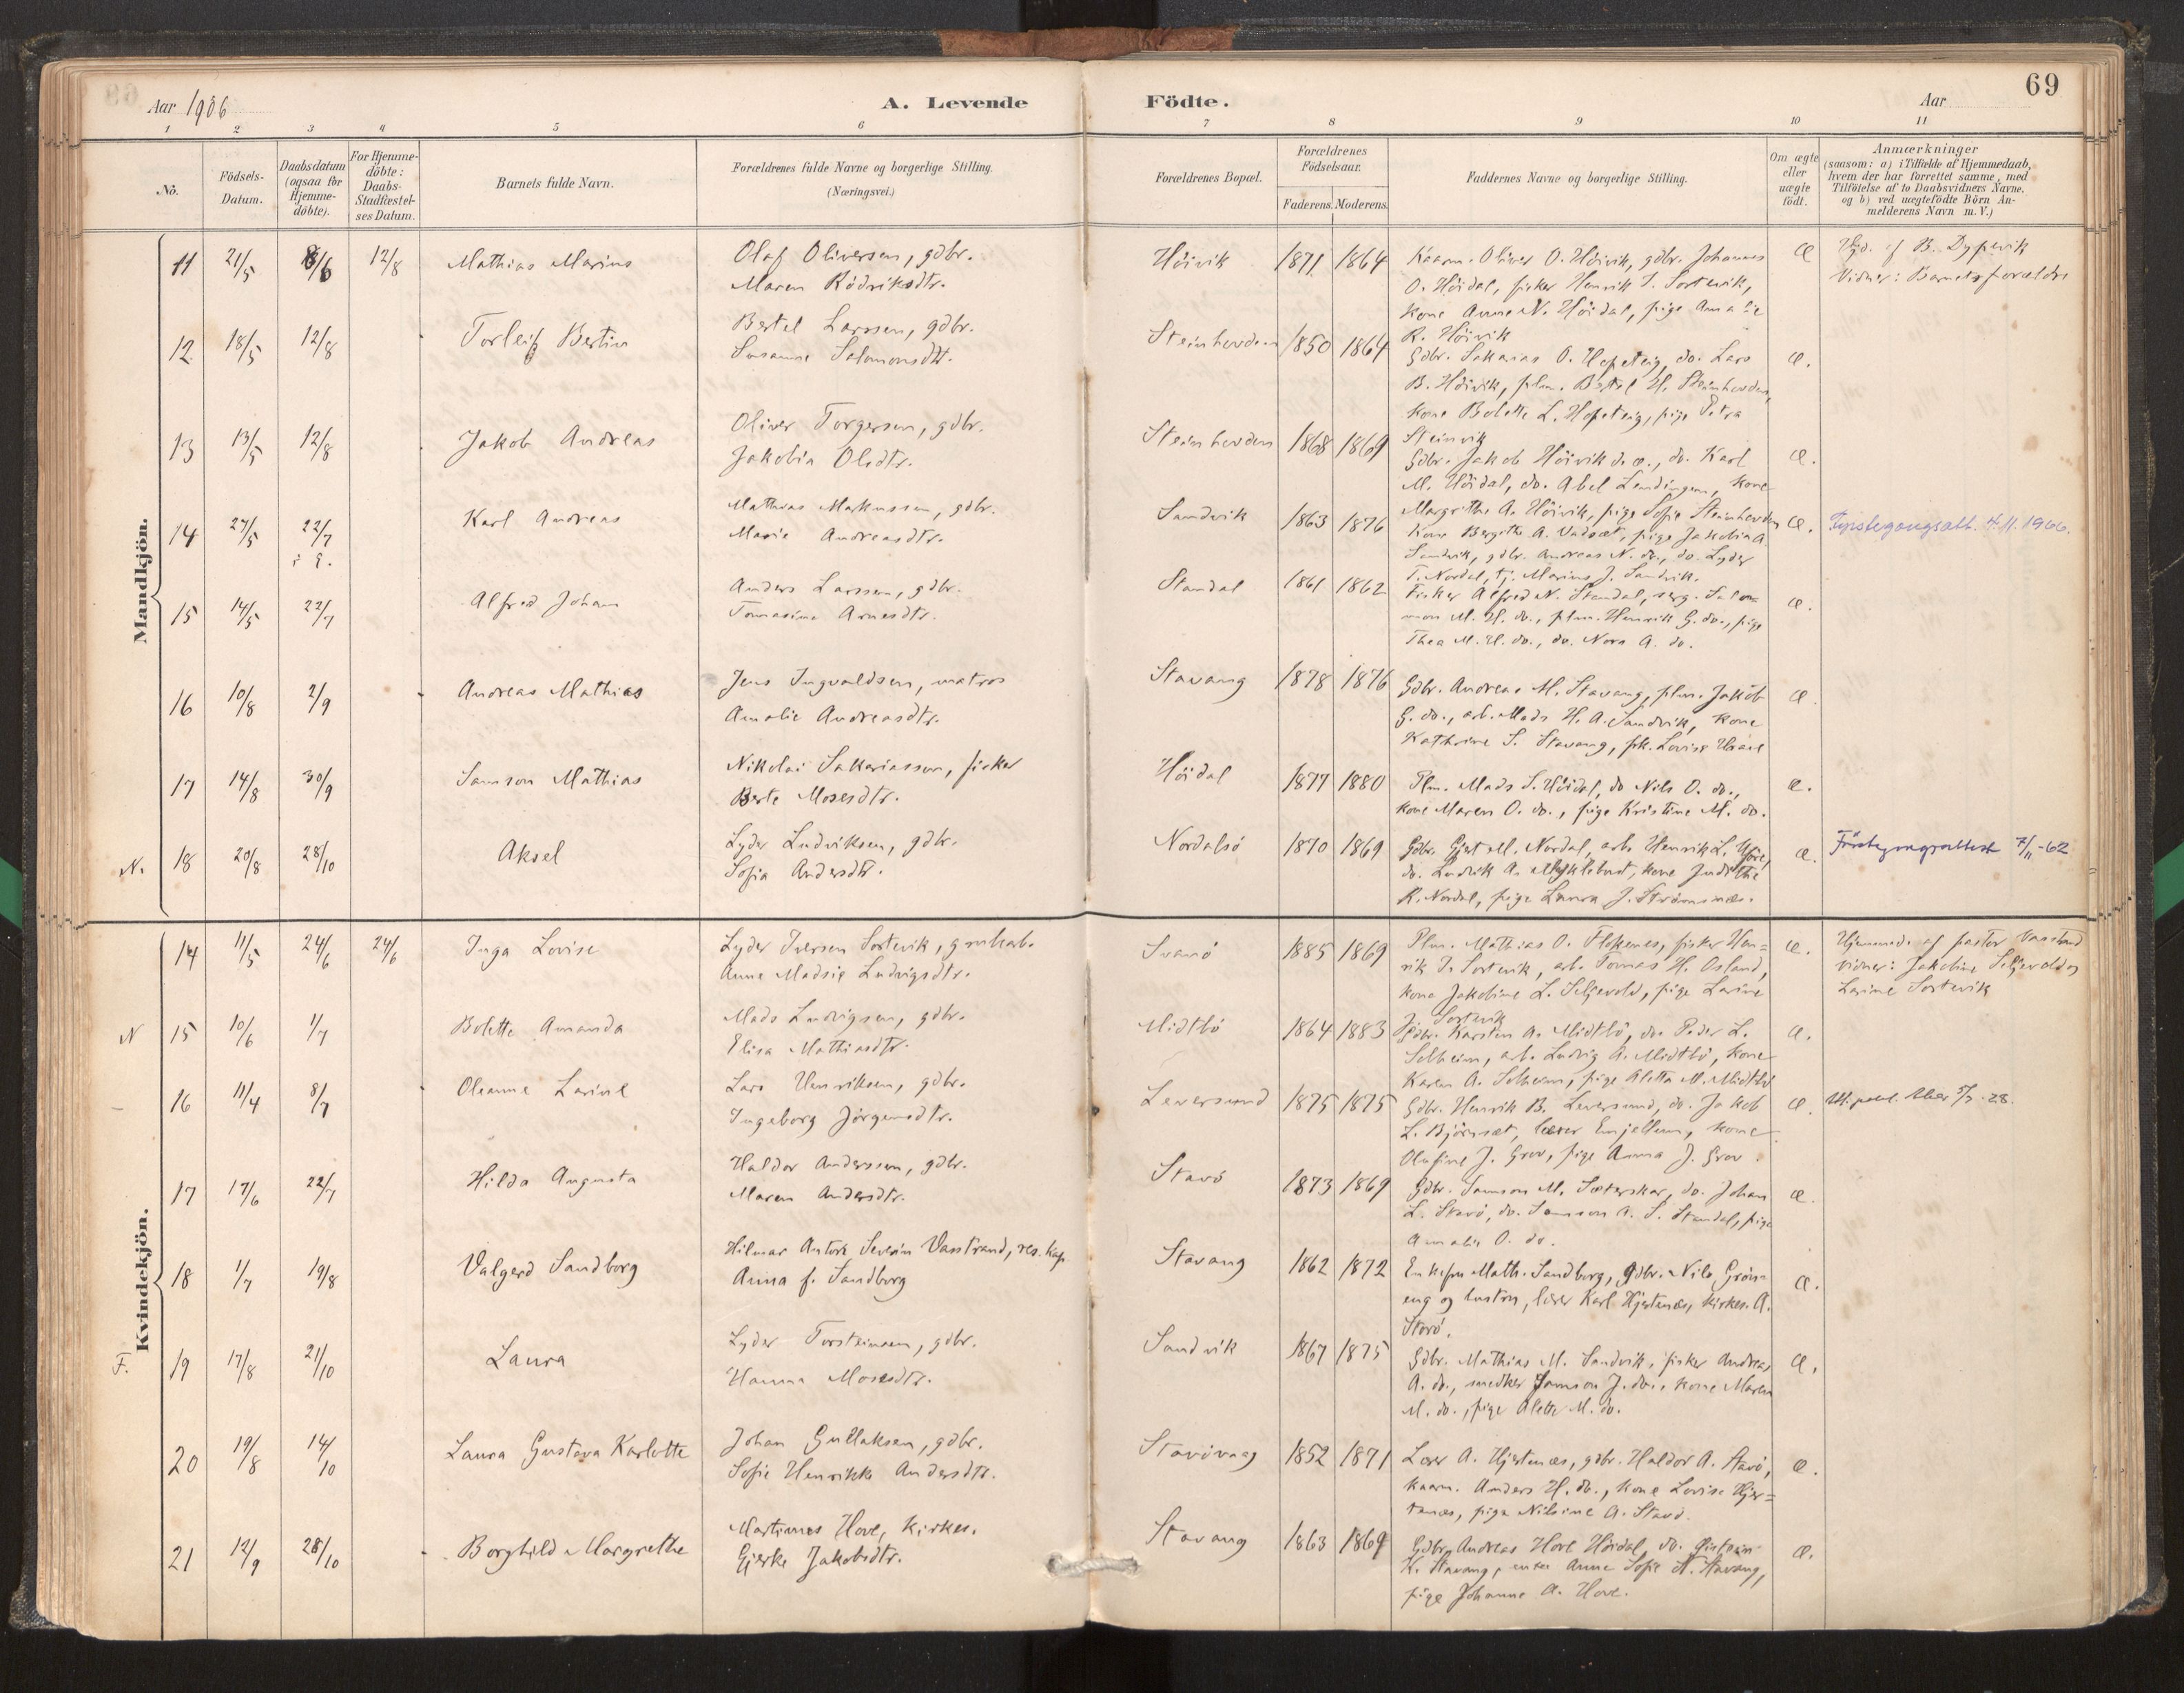 69
Aar 1906
A. Levende
Födte.
Aar
1 2 3 4 5 6 7 8 9 10 11
No.
Födsels-
Datum.
Daabsdatum
(ogsaa för
Hjemme-
döbte).
For Hjemme-
döbte:
Daabs-
Stadfæstel-
ses Datum.
Barnets fulde Navn.
Forældrenes fulde Navne og borgerlige Stilling.
(Næringsvei.)
Forældrenes Bopæl.
Forældrenes
Födselsaar.
Faderens. Moderens.
Faddernes Navne og borgerlige Stilling.
Om ægte
eller
uægte
födt.
Anmærkninger
(saasom: a) i Tilfælde af Hjemmedaab,
hvem der har forrettet samme, med
Tilföielse af to Daabsvidners Navne,
og b) ved uægtefödte Börn An-
melderens Navn m. V.)
Mandkjön.
11 21/5 12/8 Mathias Marius
Olaf Oliversen, gdbr.
Maren Rödriksdtr.
Höivik 1871 1864
Kaarm. Oliver O. Höivik, gdbr. Johannes
O. Höidal, fisker Henrik I. Sortevik,
kone Anne N. Höidal, pige Amalie
R. Höivik
æ
af B. Dypevik
Vidner: Barnets forældre
12 18/5 12/8 Torleif Bertin
Bertel Larssen, gdbr.
Susanne Salomonsdtr.
Steinhovden 1850 1864
Gdbr. Sakarias O. Hopeteig, do. Lars
B. Höivik, plm. Bertel H. Steinhovden,
kone Bolette L. Hopeteig, pige Petra
Steinvik
æ.
13 13/5 12/8 Jakob Andreas
Oliver Torgersen, gdbr.
Jakobia Olsdtr.
Steinhovden 1868 1869
Gdbr. Jakob Höivik d. æ., do. Karl
M. Höidal, do. Abel Lendingen, kone
Margrethe A. Höivik, pige Sofie Steinhovden
æ.
14 27/5 22/7 Karl Andreas
Mathias Markussen, gdbr.
Marie Andreasdtr.
Sandvik 1863 1876
Kone Bergithe A. Vadset, pige Jakobia A.
Sandvik, gdbr. Andreas N. do., do. Lyder
T. Nordal, tj. Marius J. Sandvik.
æ.
Förstegangsatt. 4.11.1966.
15 14/5 22/7 Alfred Johan
Anders Larssen, gdbr.
Tomasine Arnesdtr.
Standal 1861 1862
Fisker Alfred N. Standal, serg. Salo-
mon M. H. do., plm. Henrik G. do., pige
Thea M. H. do., do. Nora A. do.
æ.
16 10/8 2/9 Andreas Mathias
Jens Ingvaldsen, matros
Amalie Andreasdtr.
Stavang 1878 1876
Gdbr. Andreas M. Stavang, plm. Jakob
G. do., arb. Mads H. A. Sandvik, kone
Kathrine S. Stavang, pk. Lovise
æ.
17 14/8 30/9 Samson Mathias
Nikolai Sakariassen, fisker
Berte Mosesdtr.
Höidal 1877 1880
Plm. Mads S. Höidal, do Nils O. do.,
kone Maren O. do., pige Kristine M. do.
æ.
N. 18 20/8 28/10 Aksel
Lyder Ludviksen, gdbr.
Sofia Andersdtr.
Nordalsö 1870 1869
Gdbr. Gjert M. Nordal, arb. Henrik L.
do. Ludvik A. Myklebust, kone Judithe
R. Nordal, pige Laura J. Strömsnæs.
æ.
Förstegangsattest 7/11-62
Kvindekjön.
14 11/5 24/6 24/6 Inga Lovise
Lyder Iversen Sortevik,
Anne Madsie Ludvigsdtr.
Svanö 1885 1869
Plm. Mathias O. Flokenes, fisker Hen=
rik I. Sortevik, arb. Tomas H. Osland,
kone Jakobine L. Seljevold, pige Larine
J. Sortevik
æ.
Hjemmed. af pastor Vasstrand
vidner: Jakobine Seljevold og
Larine Sortevik
N 15 10/6 1/7 Bolette Amanda
Mads Ludvigsen, gdbr.
Elisa Mathiasdtr.
Midtbö 1864 1883
Gdbr. Karsten A. Midtbö, do. Peder L.
Solheim, arb. Ludvig A. Midtbö, kone
Karen A. Solheim, pige Aletta M. Midtbö
æ.
16 11/4 8/7 Oleanne Larine
Lars Henriksen, gdbr.
Ingeborg Jörgensdtr.
Leversund 1875 1875
Gdbr. Henrik B. Leversund, do. Jakob
L. Björnset, lærer Enjellum, kone
Olufine J. Grov, pige Anna J. Grov.
æ.
17 17/6 22/7 Hilda Augusta
Haldor Anderssen, gdbr.
Maren Andersdtr.
Stavö 1873 1869
Gdbr. Samson M. Sæterskar, do. Johan
L. Stavö, do. Samson A. S. Standal, pige
Amalie O. do.
æ.
18 1/7 19/8 Valgerd Sandborg
Hilmar Antore Severin Vasstrand, res. kap.
Anna f. Sandborg
Stavang 1862 1872
Enkefru Math. Sandborg, gdbr. Nils Grön=
eng og hustru, lærer Karl Hjertenæs, kirkes. A.
Stavö.
æ.
F. 19 17/8 21/10 Laura
Lyder Torsteinsen, gdbr.
Hanna Mosesdtr.
Sandvik 1867 1875
Gdbr. Mathias M. Sandvik, fisker Andreas
A. do., snedker Samson J. do., kone Maren
M. do., pige Alette M. do.
æ.
20 19/8 14/10 Laura Gustava Karlotte
Johan Gullaksen, gdbr.
Sofie Henrikke Andersdtr.
Stavövaag 1852 1871
Lærer A. Hjertenæs, gdbr. Haldor A. Stavö,
kaarm. Anders H. do., kone Lovise Hjer=
tenæs, pige Nilsine A. Stavö.
æ.
21 12/9 28/10 Borghild Margrethe
Martines Hove, kirkes.
Gjerke Jakobsdtr.
Stavang 1863 1869
Gdbr. Andreas Hove Höidal, do.
K. Stavang, enke Anne Sofie A. Stavang,
pige Johanne A. Hove.
æ.